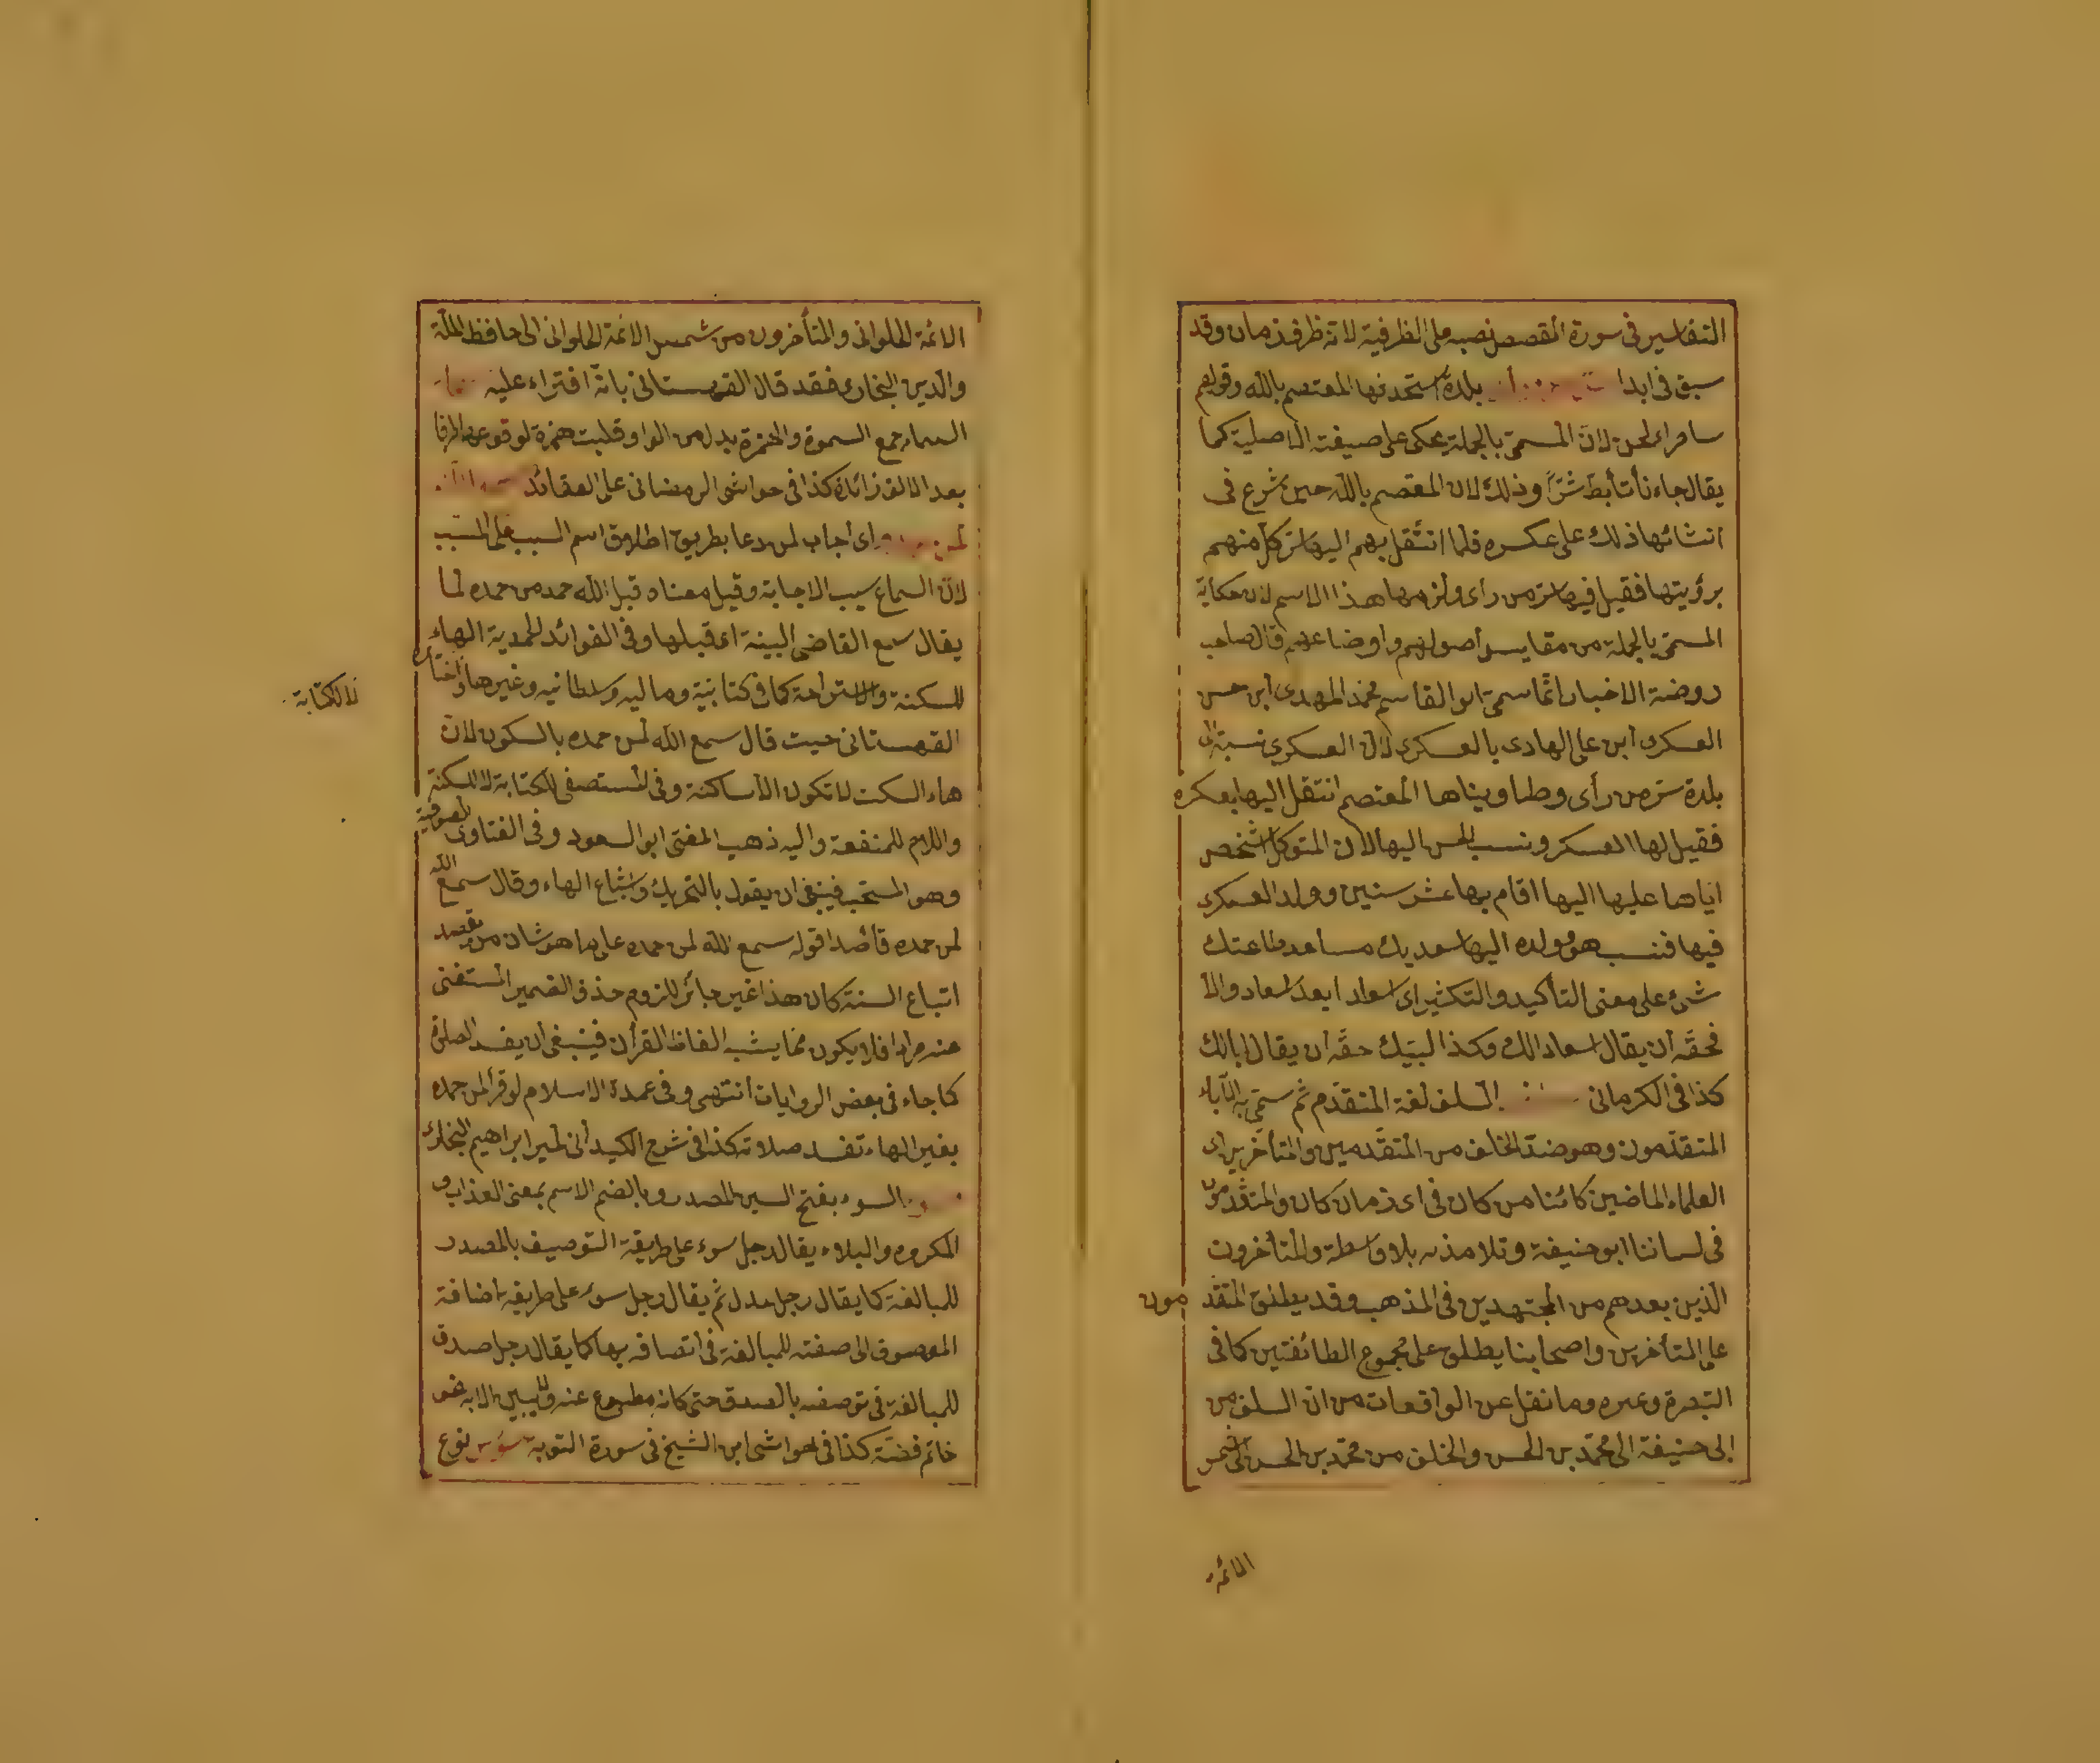 التفاسير في سورة القصص نصبه على الظرفية لانه ظرف زمان وقد
سبق في ابدا بلدة استحدثها المعتصم بالله وقولهم
سامراء لحن لانّ المسمّى بالجملة يحكى على صيغته الاصلية كما
يقال جاءنا تأبّط شرّا وذلك لان المعتصم بالله حين شرع في
انشائها ذلك على عسكره فلما انتقل بهم اليها سرّ كل منهم
برؤيتها فقيل فيها سرّ من رأى ولزمها هذا الاسم لان حكاية
المسمّى بالجملة من مقاييس أصولهم واوضاعهم قال صاحب
روضة الاخبار انّما سمّى ابو القاسم محمّد المهدى ابن حسن
العسكرى ابن على الهادى بالعسكرى لان العسكرى نسبة الى
بلدة سرّ من رأى وطا وبناها المعتصم انتقل اليها بعسكره
فقيل لها العسكر ونسب الحسن اليها لان المتوكل اشخص
اياها عليها اليها اقام بها عشر سنين وولد العسكرى
فيها فنسب هو وولده اليها سعديك مساعد طاعتك
شئ على معنى التأكيد والتكثير اى اسعادا بعد اسعاد والّا
فحقّه ان يقال اسعادك وكذا لبّيك حقّه ان يقال البابك
كذا في الكرمانى السلف لغة المتقدّم ثم سمّى به الآباء
المتقدّمون وهو ضدّ الخلف من المتقدمين والمتأخرين اى
العلماء الماضين كائنا من كان في اى زمان كان والمتقدمون
في لساننا ابو حنيفة وتلامذته بلا واسطة والمتأخرون
الّذين بعدهم من المجتهدين في المذهب وقد يطلق المتقدمون
على المتأخرين واصحابنا يطلق على مجموع الطائفتين كما في
التبصرة وغيره وما نقل عن الواقعات من ان السلف من
ابى حنيفة الى محمّد بن الحسن والخلف من محمّد بن الحسن الى شمس
الائمة
الائمة الحلوانى والمتأخرون من شمس الائمة الحلوانى الى حافظ الملّة
والدين البخارى فقد قال القهستانى بانّه افتراء عليه
السماء جمع السموة والهمزة بدل من الواو قلبت همزة لوقوعها طرفا
بعد الالف زائدة كذا في حواشى الرمضانى على العقائد
اى أجاب لمن دعا بطريق اطلاق اسم السبب على المسبب
لانّ السماع سبب الاجابة وقيل معناه قبل الله حمد من حمده لما
يقال سمع القاضى البينة اى قبلها وفي الفوائد الحمدية الهاء
للسكتة والاستراحة كما في كتابيه وماليه وسلطانيه وغيرها واختاره
القهستانى حيث قال سمع الله لمن حمده بالسكون لانّ
هاء السكت لا تكون الّا ساكنة وفي المستصفى للكتابة لا للسكتة
لا للكتابة
واللام للمنفعة واليه ذهب المفتى ابو السعود وفي الفتاوى الصوفية
وهو المستحب فينبغى ان يقول بالتحريك واشباع الهاء وقال سمع الله
لمن حمده قاصدا قوله سمع الله لمن حمده على ما هو شان من يقصد
اتباع السنة كان هذا غير جائز للزوم حذف الضمير المستغنى
عنه مرادا فلا يكون ممّا يشبه الفاظ القرآن فينبغى ان يفسد الصلوة
كما جاء في بعض الروايات انتهى وفي عمدة الاسلام لو قرأ لمن حمده
بغير الهاء تفسد صلاته كذا في شرح الكيدانى لمير ابراهيم البخارى
السوء بفتح السين المصدر وبالضم الاسم بمعنى العذاب و
المكروه والبلاء يقال رجل سوء على طريقة التوصيف بالمصدر
للمبالغة كما يقال رجل عدل ثم يقال رجل سوء على طريقة اضافة
الموصوف الى صفته للمبالغة في اتصافه بها كما يقال رجل صدق
للمبالغة في توصفه بالصدق حتى كانه مطبوع عنه
خاتم فضّة كذا في حواشى ابن الشيخ في سورة التوبة نوع